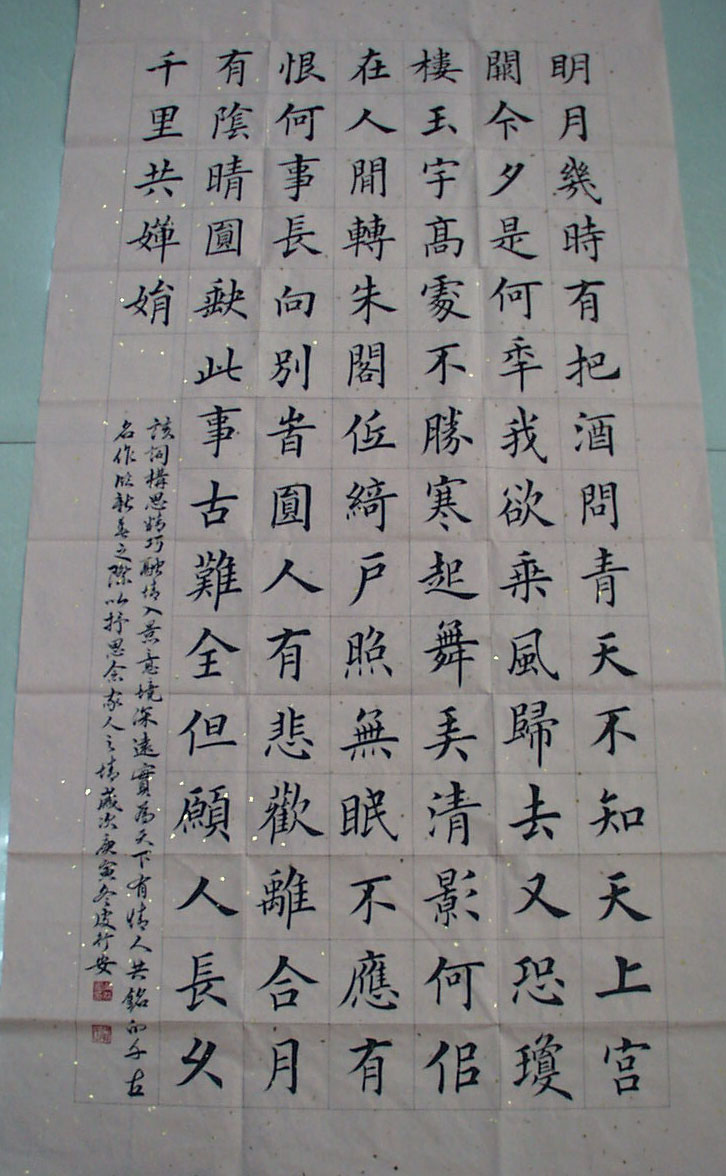 明月幾時有把酒問青天不知天上宮
闕今夕是何年我欲乘風歸去又恐瓊
樓玉宇高處不勝寒起舞弄清影何佀
在人間轉朱閣低綺戶照無眠不應有
恨何事長向別旹圓人有悲歡離合月
有陰晴圓缺此事古難全但願人長久
千里共嬋娟
該詞構思精巧融情入景意境深遠實為天下有情人共銘的千古
名作欣新春之際以抒思念家人之情歲次庚寅冬皮行安